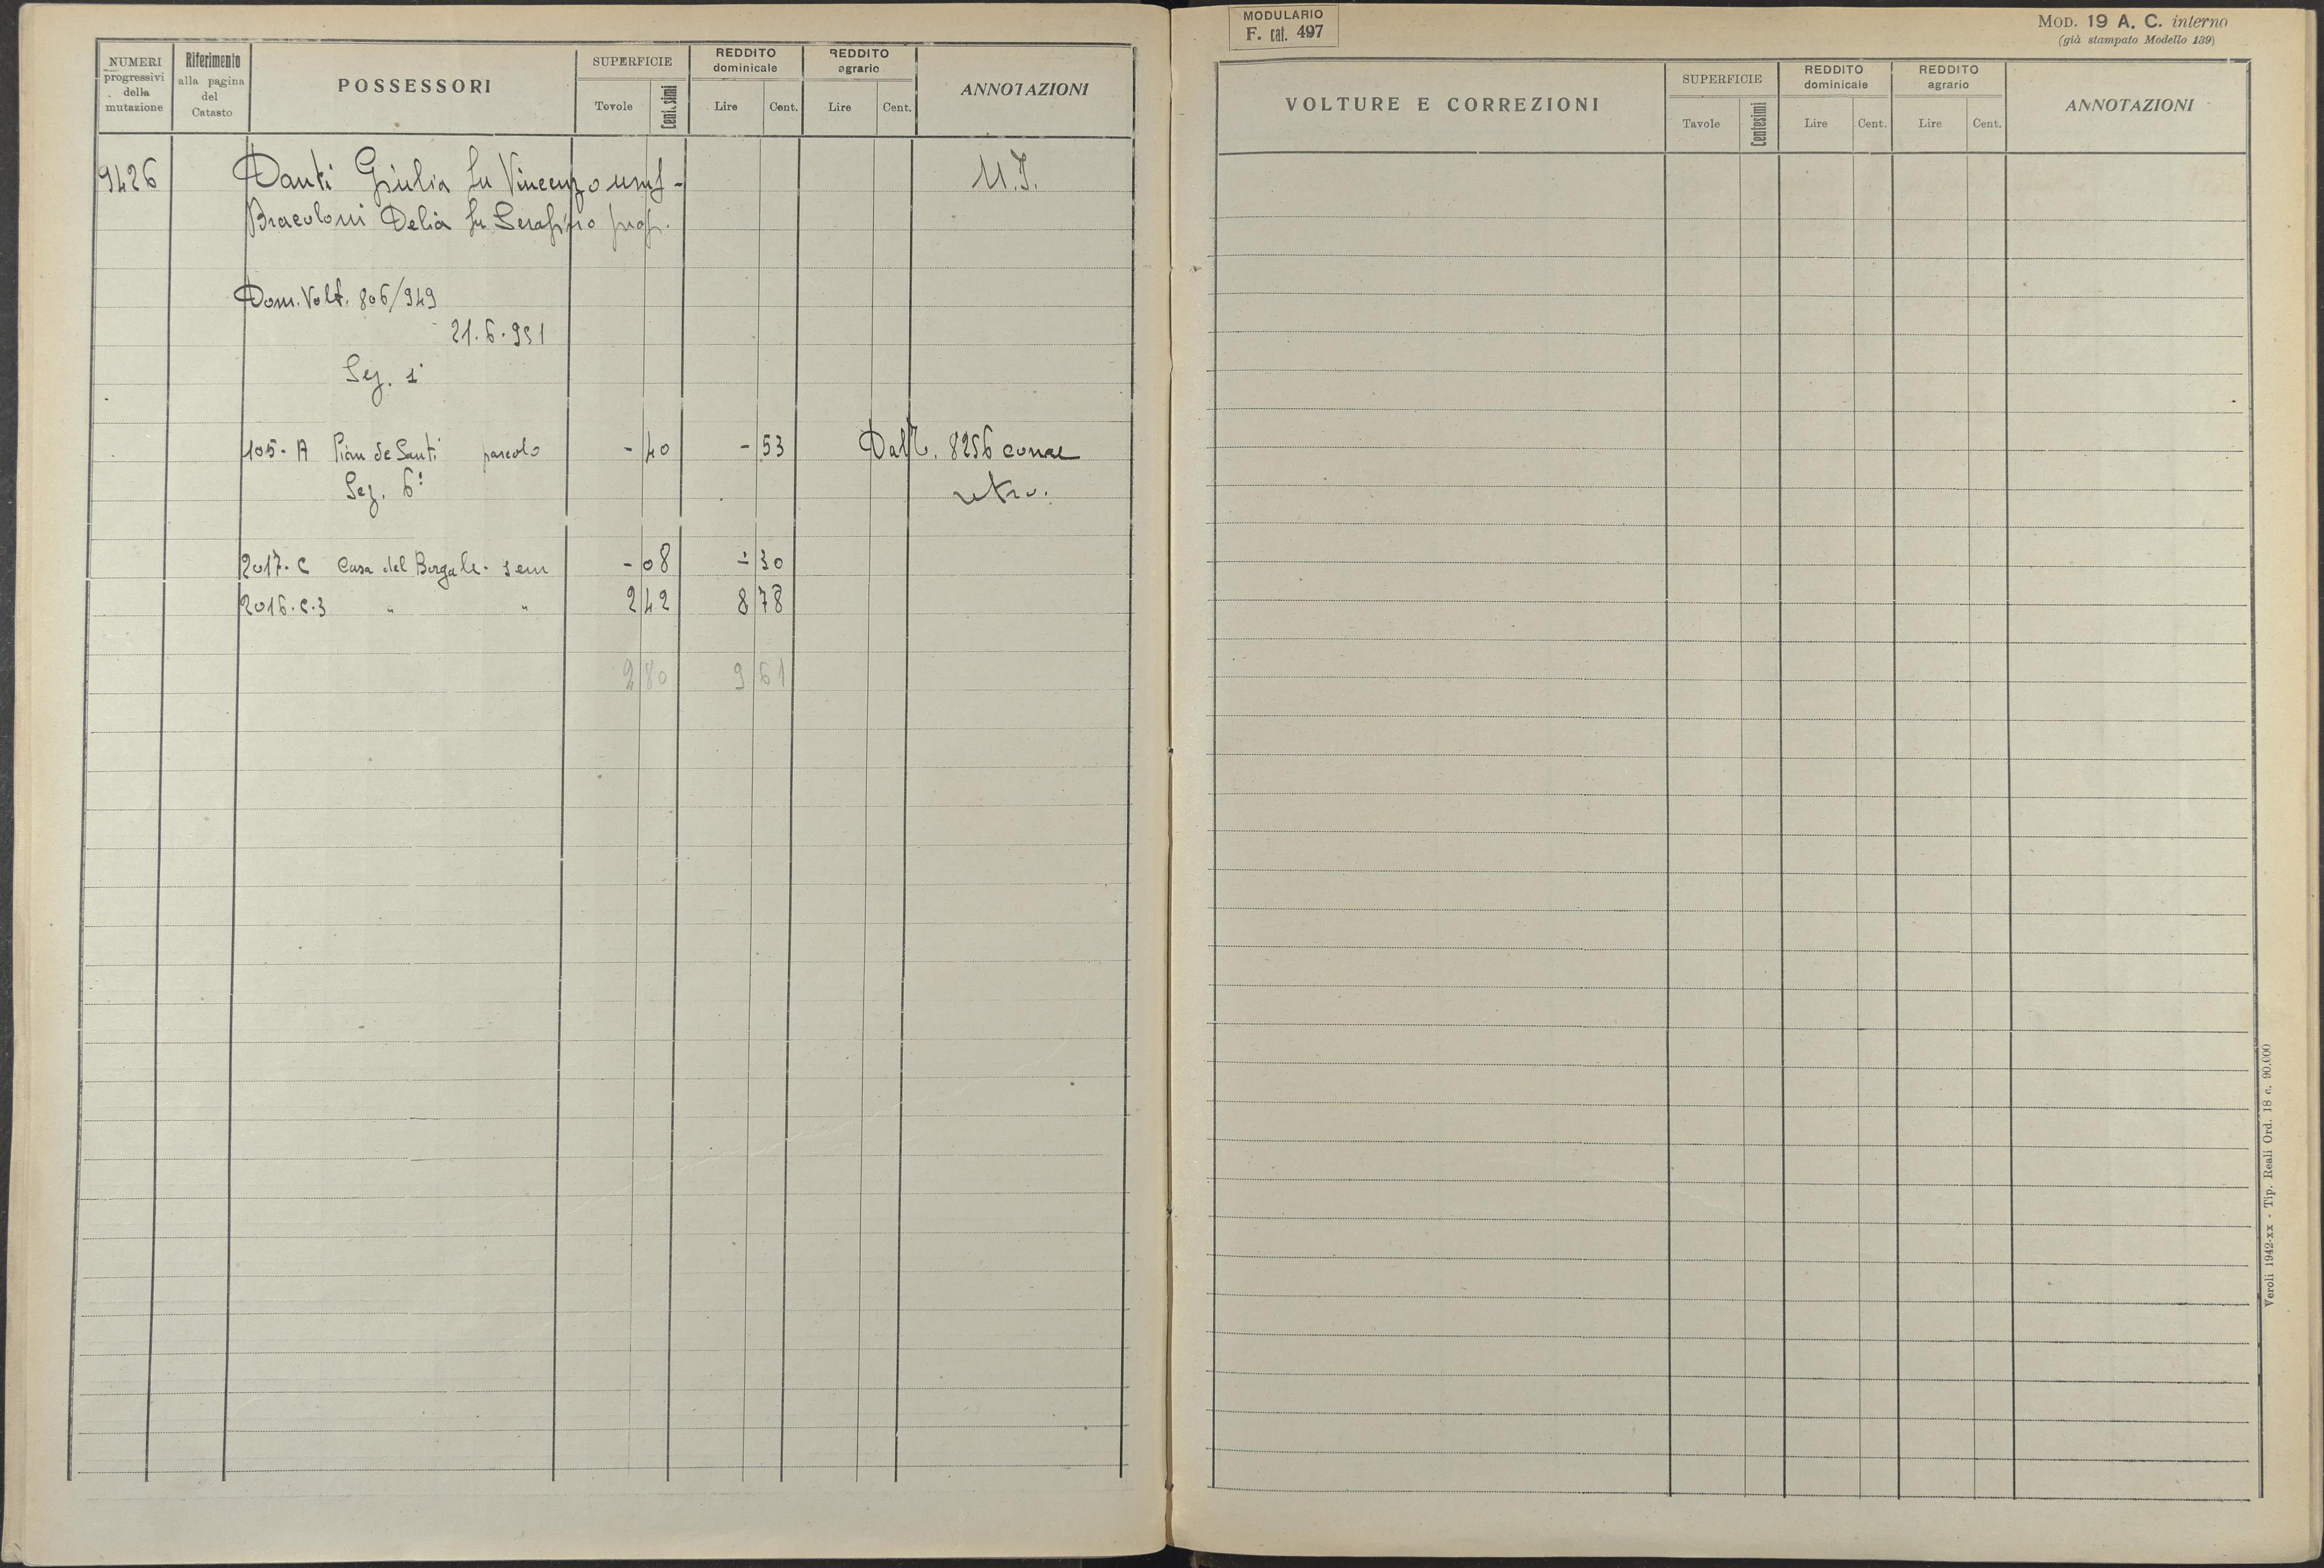 NUMERI progressivi della mutazione
Riferimento alla pagina del Catasto
POSSESSORI
SUPERFICIE
Tavole Centesimi
REDDITO dominicale
Lire Cent.
REDDITO agrario
Lire Cent.
ANNOTAZIONI
9426 Danti Giulia fu Vincenzo usuf - U.T.
Bracoloni Delia fu Serafino prop.
Dom. Volt. 806/949
21.6.951
Sez. 1ª
105 - A Pian de Santi pascolo - 40 - 53 Dall. 8256 come
Sez. 6ª retro.
2017 - C Casa del Borgale - sem - 08 - 30
2016.C.3 " " 2 42 8 78
2 80 9 61
MODULARIO
F. cat. 497
MOD. 19 A. C. interno
(già stampato Modello 139)
VOLTURE E CORREZIONI
SUPERFICIE
Tavole Centesimi
REDDITO dominicale
Lire Cent.
REDDITO agrario
Lire Cent.
ANNOTAZIONI
Veroli 1942-xx - Tip. Reali Ord. 18 c. 90.000